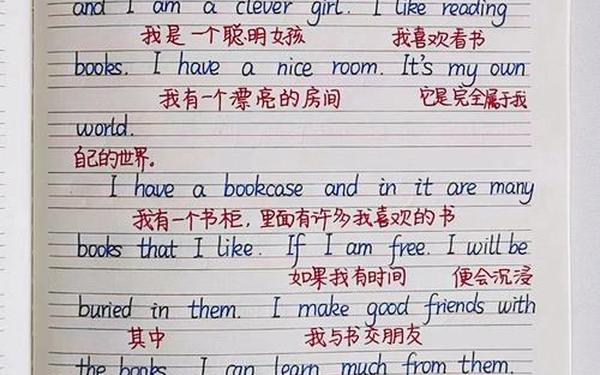 and I am a clever girl. I like reading
我是一个聪明女孩 我喜欢看书
books. I have a nice room. It's my own
我有一个漂亮的房间 它是完全属于我
world.
自己的世界。
I have a bookcase and in it are many
我有一个书柜，里面有许多我喜欢的书
books that I like. If I am free. I will be
如果我有时间 便会沉浸
buried in them. I make good friends with
其中 我与书交朋友
the books. I can learn much from them.